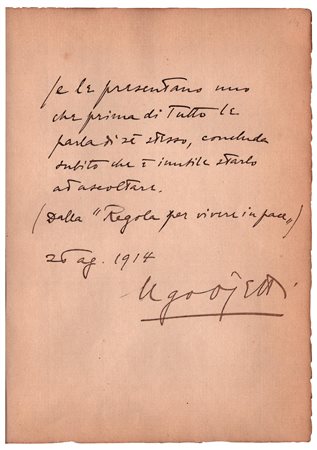 Se le presentano uno
che prima di tutto le
parla di sé stesso, concluda
subito che è inutile starlo
ad ascoltare.
(Dalla "Regola per vivere in pace„)
26 ag. 1914
Ugo Ojetti